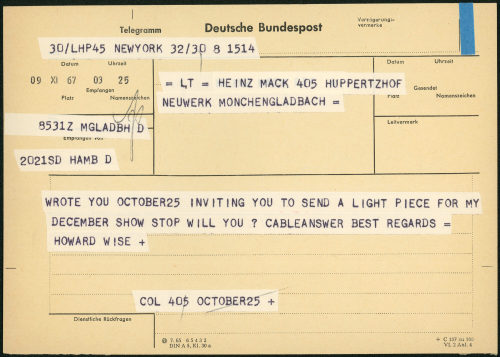 Telegramm
Deutsche Bundespost
Verzögerungs-
vermerke
30/LHP45 NEWYORK 32/30 8 1514
Datum Uhrzeit
09 XI 67 03 25
Empfangen
Platz Namenszeichen
= LT = HEINZ MACK 405 HUPPERTZHOF
NEUWERK MONCHENGLADBACH =
Datum Uhrzeit
Gesendet
Platz Namenszeichen
8531Z MGLADBH D
Empfangen von
Leitvermerk
2021SD HAMB D
WROTE YOU OCTOBER25 INVITING YOU TO SEND A LIGHT PIECE FOR MY
DECEMBER SHOW STOP WILL YOU ? CABLEANSWER BEST REGARDS =
HOWARD WISE +
COL 405 OCTOBER25 +
Dienstliche Rückfragen
7. 65 6 5 4 3 2
DIN A 5, Kl. 30 a
+ C 187
VI, 2 Anl. 4